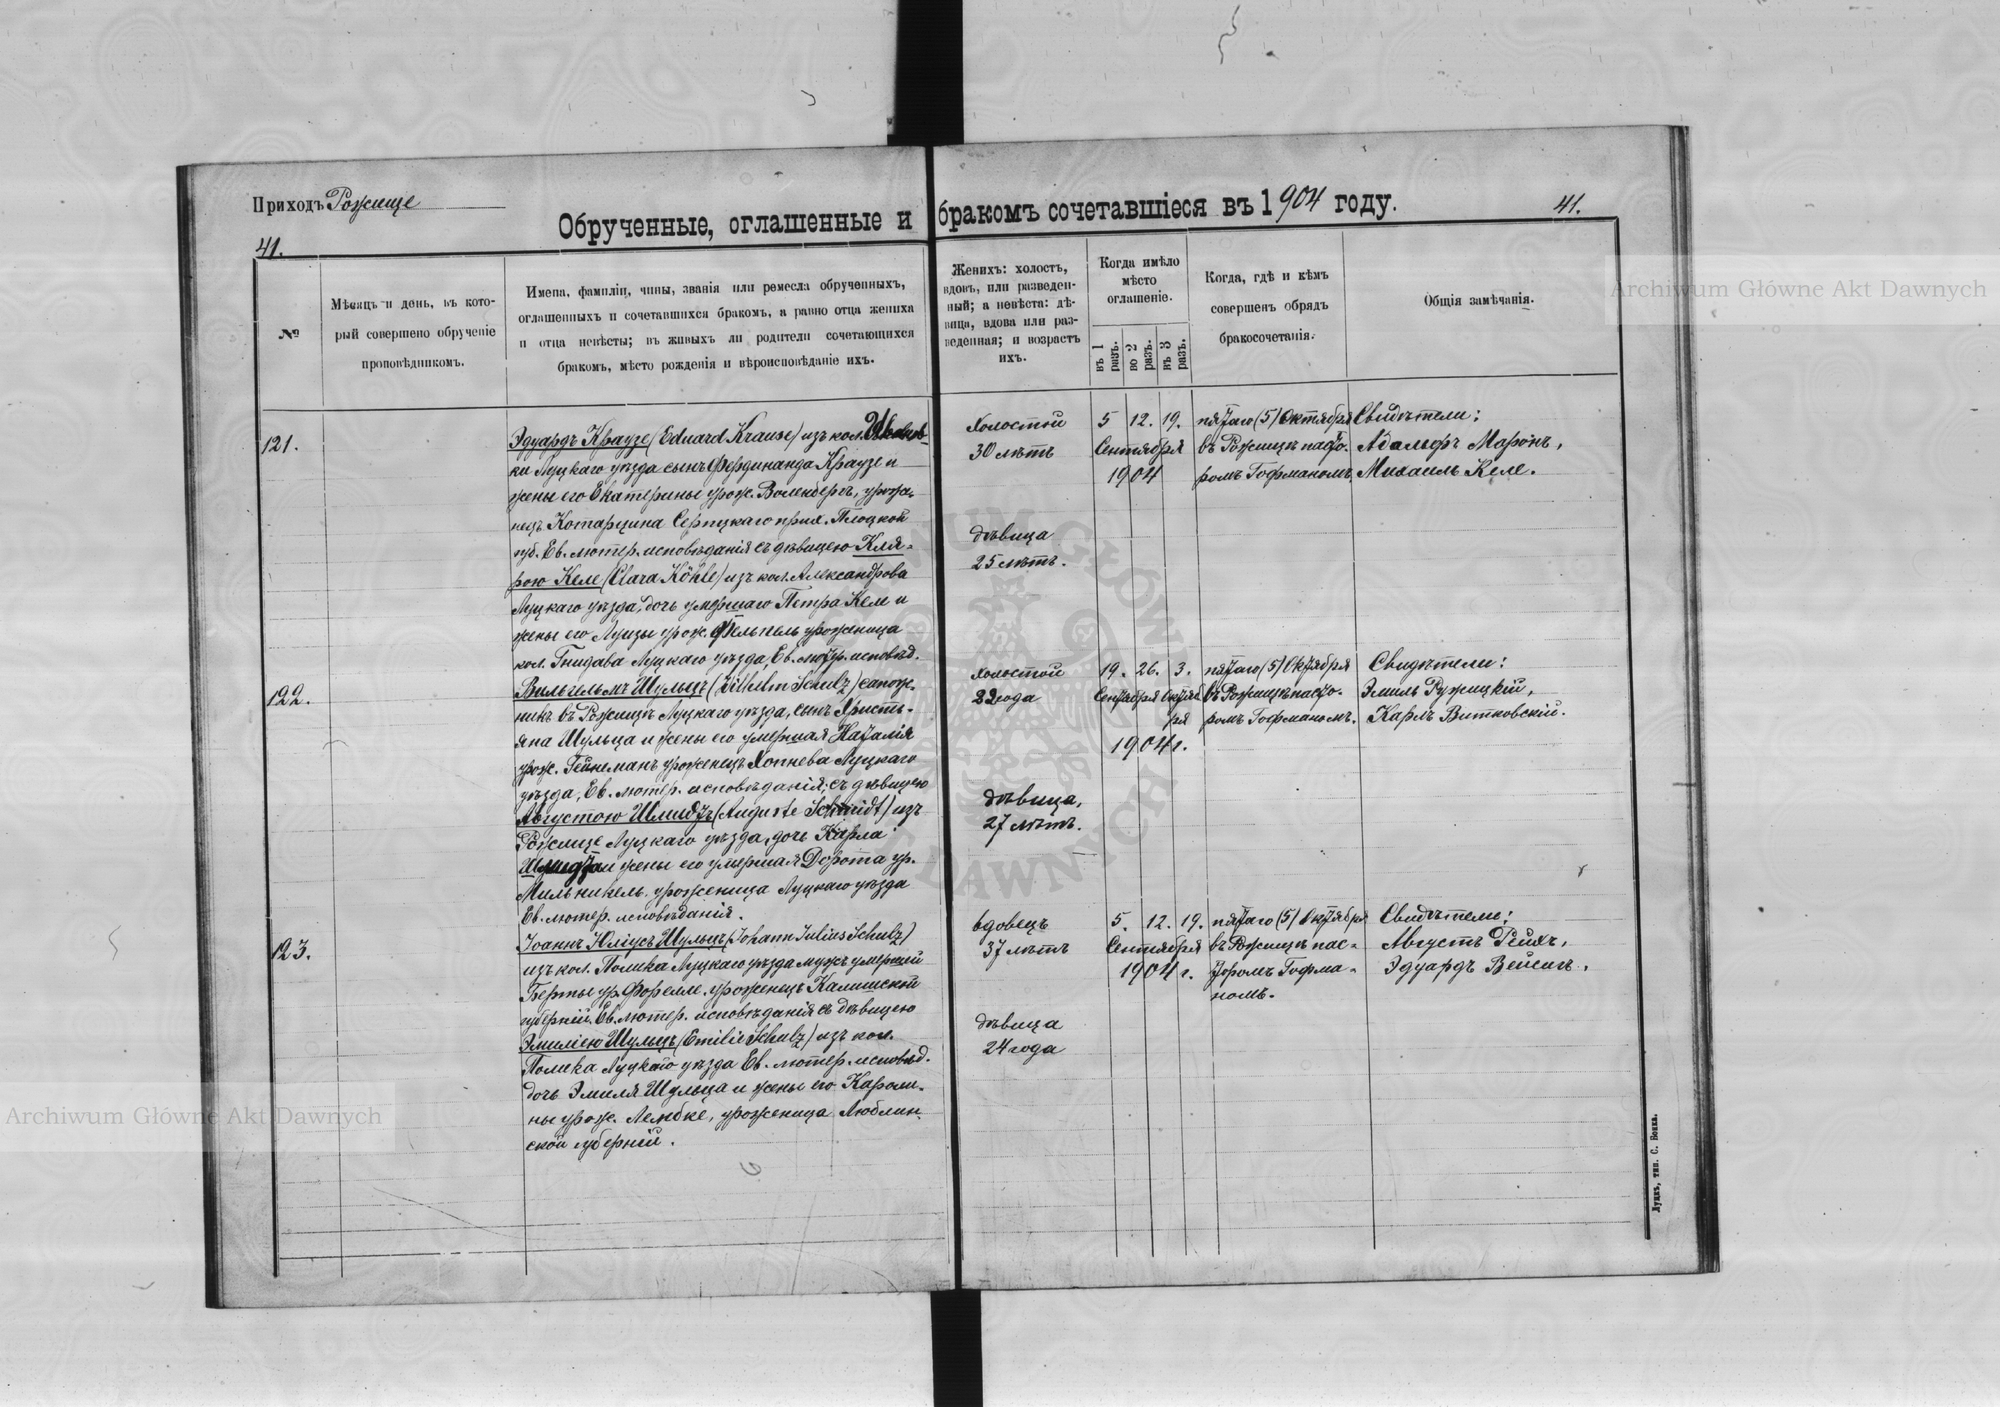 Приходъ Рожище
Обрученные, оглашенные и бракомъ сочетавшіеся въ 1904 году.
41.
41.
№
Мѣсяцъ и день, въ кото-
рый совершено обрученіе
проповѣдникомъ.
Имена, фамиліи, чины, званія или ремесла обрученныхъ,
оглашенныхъ и сочетавшихся бракомъ, а равно отца жениха
и отца невѣсты; въ живыхъ ли родители сочетающихся
бракомъ, мѣсто рожденія и вѣроисповѣданіе ихъ.
Женихъ: холостъ,
вдовъ, или разведен-
ный; а невѣста: дѣ-
вица, вдова или раз-
веденная; и возрастъ
ихъ.
Когда имѣло
мѣсто
оглашеніе.
въ 1
разъ.
во 2
разъ.
въ 3
разъ.
Когда, гдѣ и кѣмъ
совершенъ обрядъ
бракосочетанія.
Общія замѣчанія.
121.
Эдуардъ Краузе (Eduard Krause) изъ кол.
ки Луцкаго уѣзда сынъ Фердинанда Краузе и
жены его Екатерины урож. Воленбергъ, уроже-
нецъ Котарцина Серпцкаго прих. Плоцкой
губ. Ев. лютер. исповѣданія съ дѣвицею Кля-
рою Келе (Clara Köhle) изъ кол. Александрова
Луцкаго уѣзда, дочь умершаго Петра Келе и
жены его Луизы урож. Фельпель уроженица
кол. Гнидава Луцкаго уѣзда, Ев. лютр. исповѣд.
холостой
30 лѣтъ
дѣвица
25 лѣтъ.
5 12. 19.
Сентября
1904
пятаго (5) Октября
въ Рожищѣ пасто-
ромъ Гофманомъ
Свидѣтели:
Адальфъ Маронъ,
Михаилъ Келе.
122.
Вильгельмъ Шульцъ (Wilhelm Schulz) сапож-
никъ въ Рожищѣ Луцкаго уѣзда, сынъ Христь-
яна Шульца и жены его умершая Наталія
урож. Гейнеманъ уроженецъ Копнева Луцкаго
уѣзда, Ев. лютер. исповѣданія, съ дѣвицею
Августою Шмидтъ (Auguste Schmidt) изъ
Рожище Луцкаго уѣзда, дочь Карла
Шмидта и жены его умершая Дорота ур.
Мильникель, уроженица Луцкаго уѣзда
Ев. лютер. исповѣданія.
холостой
22 года
дѣвица,
27 лѣтъ.
19. 26. 3.
Сентября Октяб
ря
1904 г.
пятаго (5) Октября
въ Рожищѣ пасто-
ромъ Гофманомъ.
Свидѣтели:
Эмиль Ружицкій,
Карлъ Витковскій.
123.
Іоаннъ Юліусъ Шульцъ (Johann Julius Schulz)
изъ кол. Полика Луцкаго уѣзда мужъ умершей
Берты ур. Форелле, уроженецъ Калишской
губерніи. Ев. лютер. исповѣданія съ дѣвицею
Эмиліею Шульцъ (Emilie Schulz) изъ кол.
Полика Луцкаго уѣзда Ев. лютер. исповѣд.
дочь Эмиля Шульца и жены его Кароли-
ны урож. Лембке, уроженица Люблин-
ской губерніи.
вдовецъ
37 лѣтъ
дѣвица
24 года
5. 12. 19.
Сентября
1904 г.
пятаго (5) Октября
въ Рожищѣ пас-
торомъ Гофма-
номъ.
Свидѣтели:
Августъ Рейхъ,
Эдуардъ Вейсигъ.
Луцкъ, тип. С. Бокка.
Archiwum Główne Akt Dawnych
Archiwum Główne Akt Dawnych